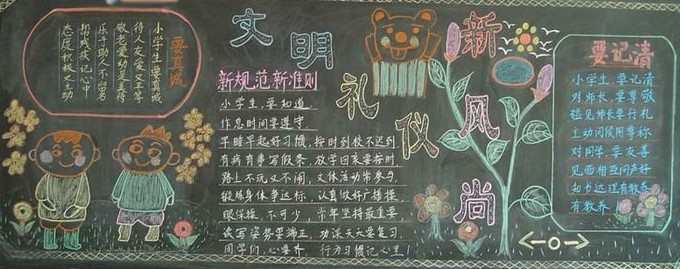 文明礼仪新风尚
要真诚
小学生要真诚
待老友爱又平等
敬老爱幼是美德
乐于助人不留名
帮残疾记心中
态度积极又主动
新规范新准则
小学生，要知道，
作息时间要遵守
早睡早起好习惯，按时到校不迟到
有病有事写假条，放学回家要按时
路上不玩又不闹，文体活动常参与
锻炼身体争达标，认真做好广播操，
眼保操，不可少，常年坚持最重要
读写姿势要端正，功课天天要复习
同学们，心要齐，行为习惯记心里！
要记清
小学生，要记清
对师长，要尊敬
碰见师长要行礼
主动问候用尊称
对同学，要友善
见面相互问声好
有教养